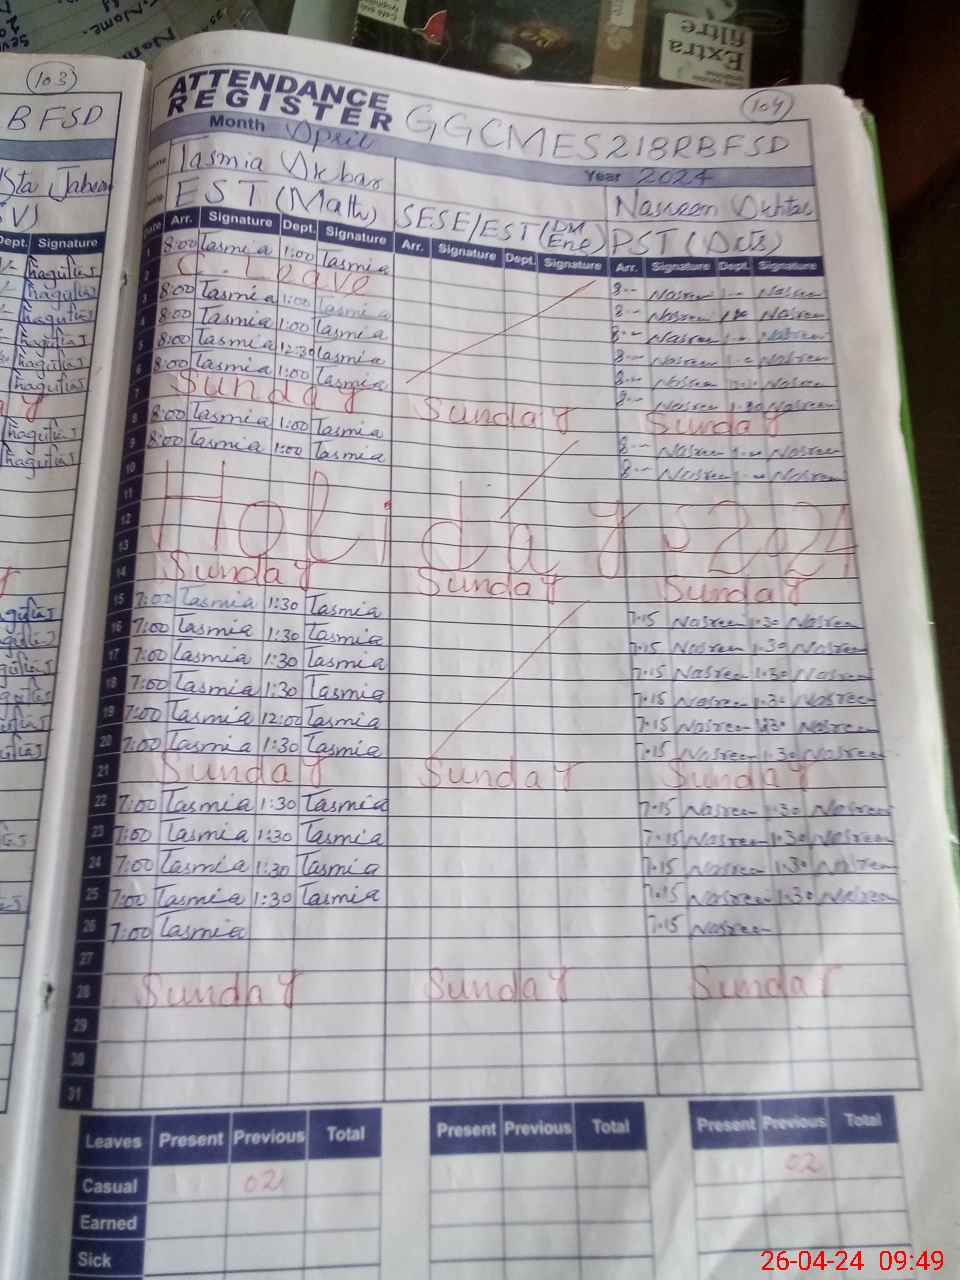 Extra
filtre
103
BFSD
Dept. Signature
104
ATTENDANCE
REGISTER GGCMES218RBFSD
Month April
Year 2024
Tasmia Akbar
Nasreen Akhtar
EST (Math) SESE/EST (DM Eng) PST (Arts)
Arr. Signature Dept. Signature Arr. Signature Dept. Signature Arr. Signature Dept. Signature
1 8:00 Tasmia 1:00 Tasmia 8-- Nasreen 1-- Nasreen
2 C. Leave 8-- Nasreen Nasreen
3 8:00 Tasmia 1:00 Tasmia 8-- Nasreen 1-- Nasreen
4 8:00 Tasmia 1:00 Tasmia 8-- Nasreen Nasreen
5 8:00 Tasmia 12:30 Tasmia 8-- Nasreen Nasreen
6 8:00 Tasmia 1:00 Tasmia 8-- Nasreen Nasreen
7 Sunday Sunday Sunday
8 8:00 Tasmia 1:00 Tasmia 8-- Nasreen 1-- Nasreen
9 8:00 Tasmia 1:00 Tasmia 8-- Nasreen 1-- Nasreen
10
11
12 Holidays 2024
13
14 Sunday Sunday Sunday
15 7:00 Tasmia 1:30 Tasmia 7.15 Nasreen 1.30 Nasreen
16 7:00 Tasmia 1:30 Tasmia 7.15 Nasreen 1.30 Nasreen
17 7:00 Tasmia 1:30 Tasmia 7.15 Nasreen 1.30 Nasreen
18 7:00 Tasmia 1:30 Tasmia 7.15 Nasreen 1.30 Nasreen
19 7:00 Tasmia 12:00 Tasmia 7.15 Nasreen 1.30 Nasreen
20 7:00 Tasmia 1:30 Tasmia 7.15 Nasreen 1.30 Nasreen
21 Sunday Sunday Sunday
22 7:00 Tasmia 1:30 Tasmia 7.15 Nasreen 1.30 Nasreen
23 7:00 Tasmia 1:30 Tasmia 7.15 Nasreen 1.30 Nasreen
24 7:00 Tasmia 1:30 Tasmia 7.15 Nasreen 1.30 Nasreen
25 7:00 Tasmia 1:30 Tasmia 7.15 Nasreen 1.30 Nasreen
26 7:00 Tasmia 7.15 Nasreen
27
28 Sunday Sunday Sunday
29
30
31
Leaves Present Previous Total Present Previous Total Present Previous Total
Casual 02 02
Earned
Sick
26-04-24 09:49